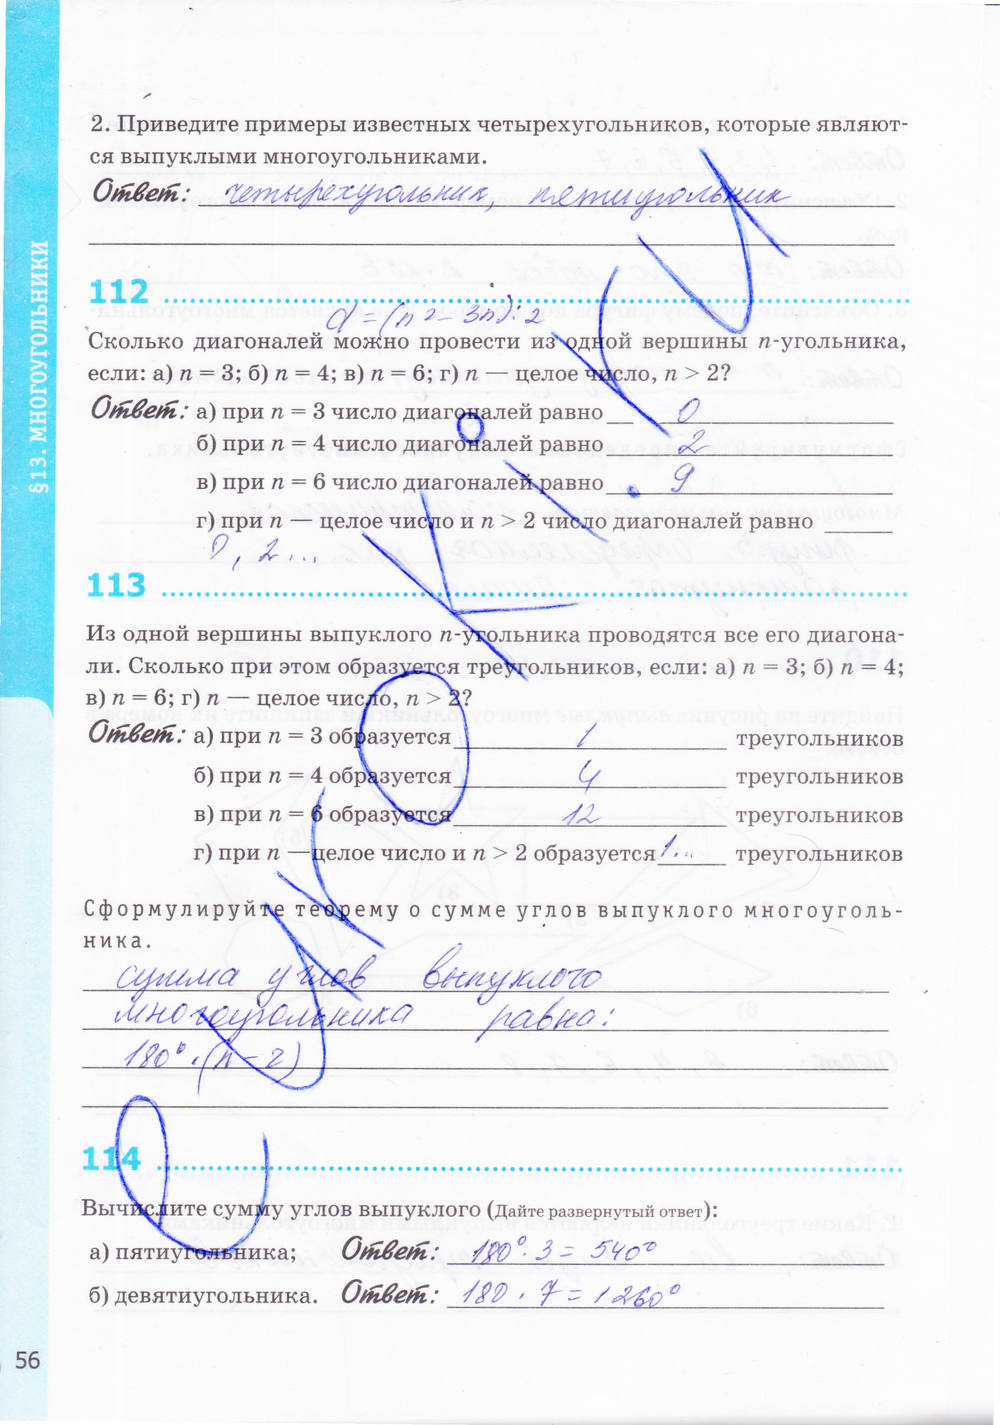 2. Приведите примеры известных четырехугольников, которые являют-
ся выпуклыми многоугольниками.
Ответ: четырехугольник, пятиугольник
§13. МНОГОУГОЛЬНИКИ
112
d = (n² – 3n) : 2
Сколько диагоналей можно провести из одной вершины n-угольника,
если: а) n = 3; б) n = 4; в) n = 6; г) n — целое число, n > 2?
Ответ: а) при n = 3 число диагоналей равно 0
б) при n = 4 число диагоналей равно 2
в) при n = 6 число диагоналей равно 9
г) при n — целое число и n > 2 число диагоналей равно
0, 2 ...
113
Из одной вершины выпуклого n-угольника проводятся все его диагона-
ли. Сколько при этом образуется треугольников, если: а) n = 3; б) n = 4;
в) n = 6; г) n — целое число, n > 2?
Ответ: а) при n = 3 образуется 1 треугольников
б) при n = 4 образуется 4 треугольников
в) при n = 6 образуется 12 треугольников
г) при n — целое число и n > 2 образуется 1... треугольников
Сформулируйте теорему о сумме углов выпуклого многоуголь-
ника.
сумма углов выпуклого
многоугольника равна:
180° · (n – 2)
114
Вычислите сумму углов выпуклого (Дайте развернутый ответ):
а) пятиугольника; Ответ: 180° · 3 = 540°
б) девятиугольника. Ответ: 180 · 7 = 1260°
56